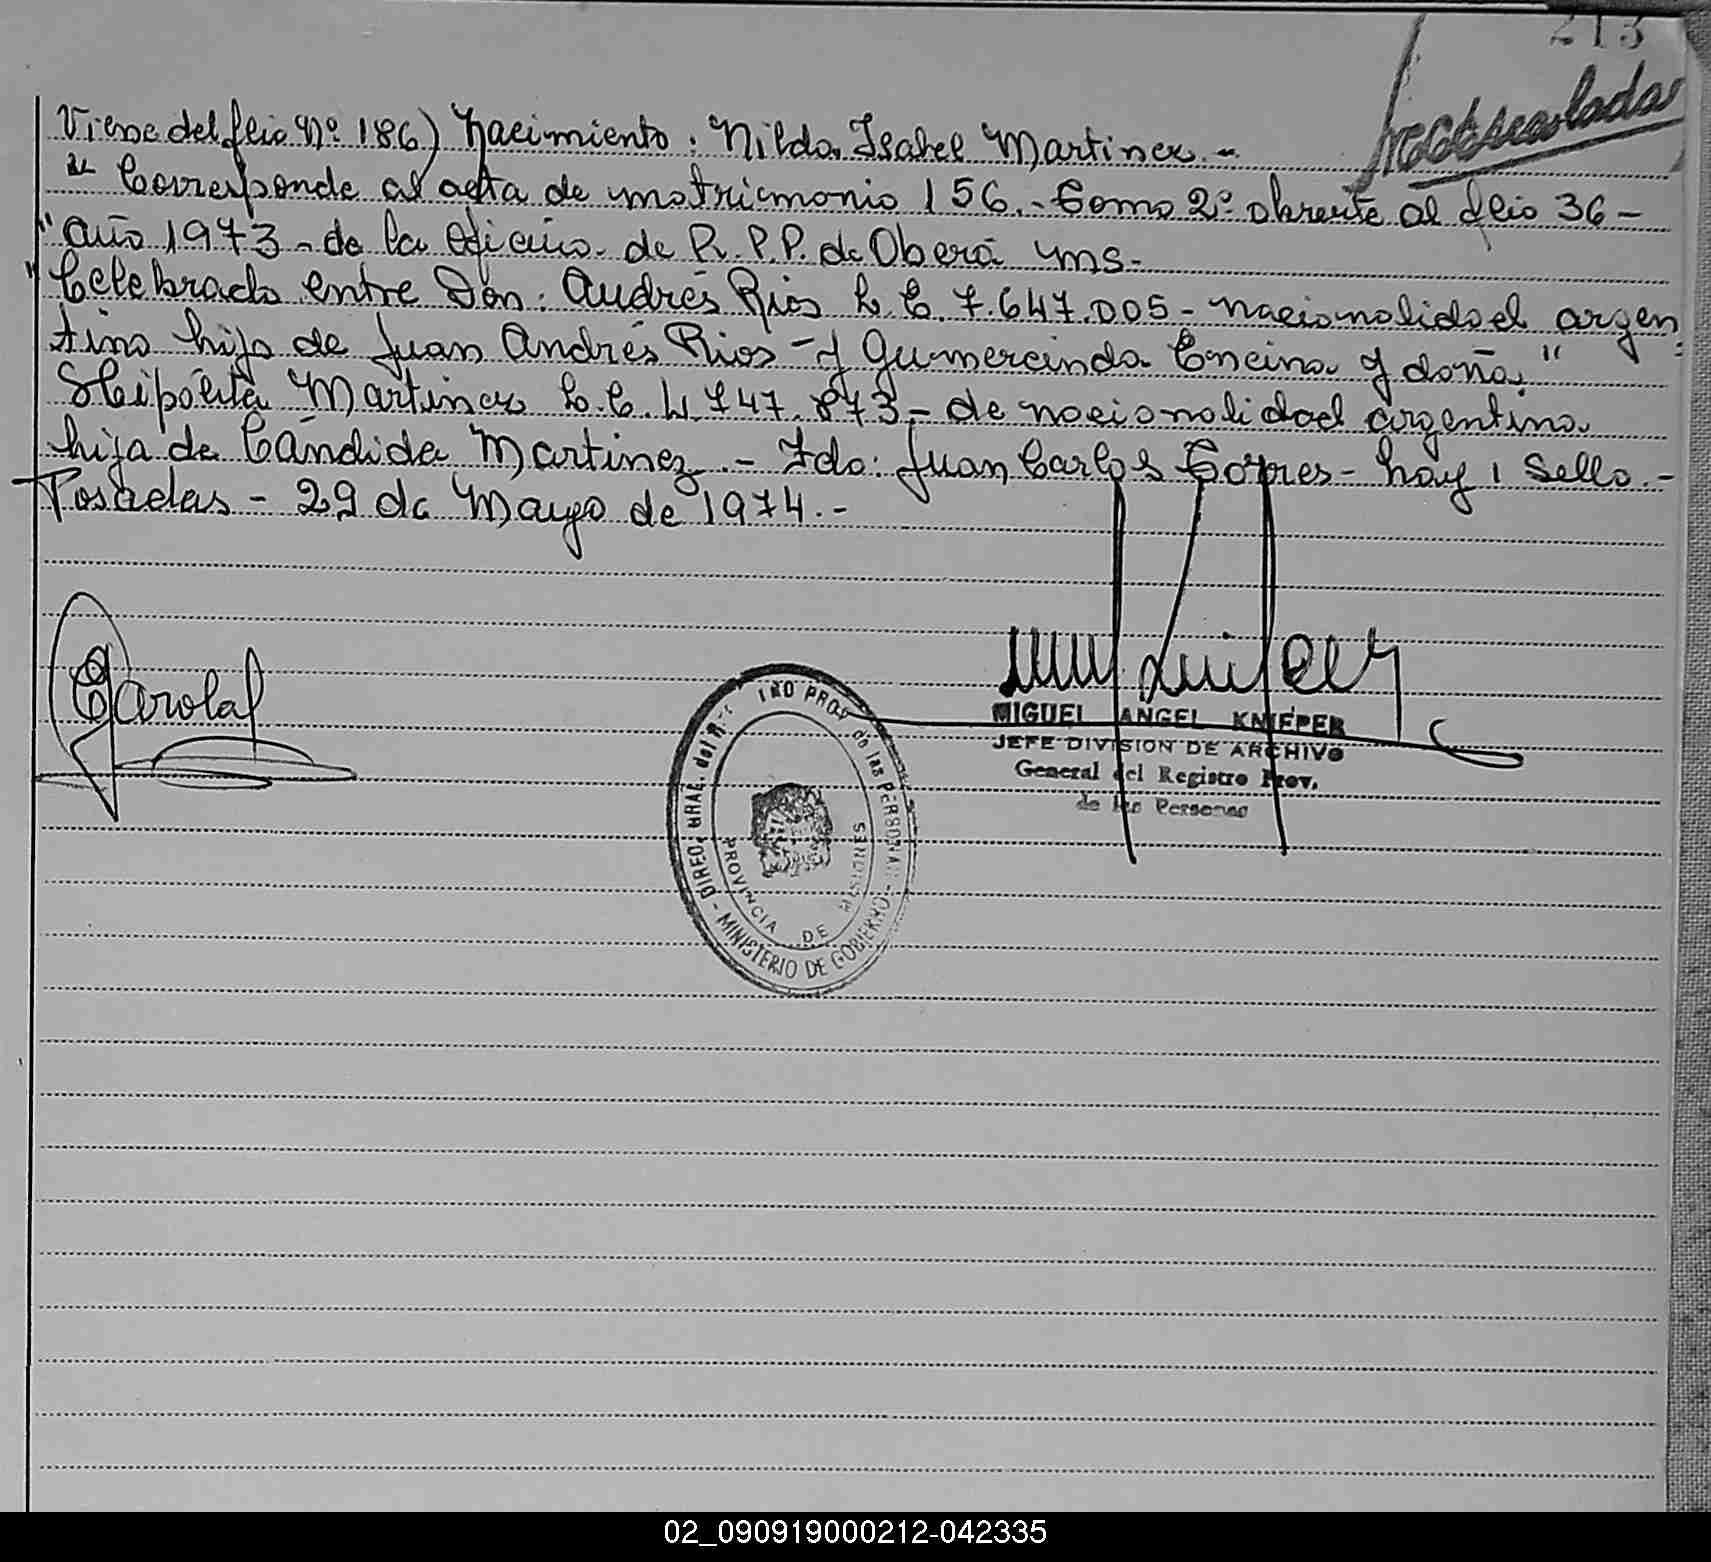 213
Viene del flio Nº 186) Nacimiento: Nilda Isabel Martinez.-
" Corresponde al acta de matrimonio 156.- Tomo 2º obrante al flio 36-
"año 1973- de la oficina de R.P.P. de Oberá Ms.-
"Celebrado entre Don: Andrés Rios L.E. 7.647.005- nacionalidad argen
tino hijo de Juan Andrés Rios - y Gumercinda Encina y doña "
Martinez L.C. 4.747.873- de nacionalidad argentina
hija de Cándida Martinez.- Fdo: Juan Carlos Torres- hay 1 sello.-
Posadas - 29 de Mayo de 1974.-
MIGUEL ANGEL KNIEPER
JEFE DIVISION DE ARCHIVO
General del Registro Prov.
de las Personas
DIREC. GRAL. del PROV de las PERSONAS - MINISTERIO DE GOBIERNO -
PROVINCIA DE MISIONES
02_090919000212-042335